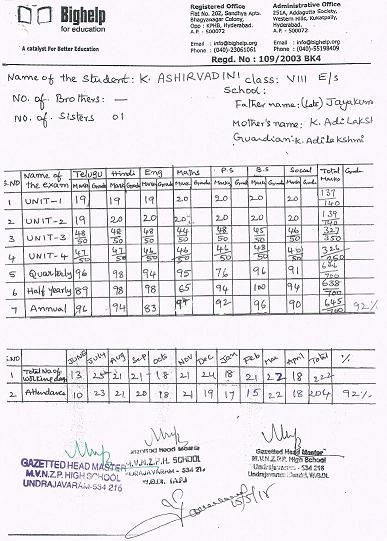 Bighelp
for education
A catalyst For Better Education
Registered Office
Flat No. 202, Sandhya Apts.
Bhagyanagar Colony,
Opp : KPHB, Hyderabad.
A.P. - 500072
Email : info@bighelp.org
Phone : (040)-23061061
Administrative Office
251A, Addagutta Society
Western Hills, Kukatpally,
Hyderabad.
A.P. - 500072
Email : info@bighelp.org
Phone : (040)-55198409
Regd. No : 109/2003 BK4
Name of the Student: K. ASHIRVADINI class: VIII E/s
School:
NO. of Brothers: —
Father name: (late) Jayakum
NO. of Sisters 01
Mother's name: K. Adi Laksh
Guardian: K. Adi Lakshmi
S.NO Name of the exam Telugu Hindi Eng Maths P.S B.S Social Total Marks Grade
Marks Grade Marks Grade Marks Grade Marks Grade Marks Grade Marks Grade Marks Grade
1 UNIT-1 19 19 19 20 20 20 20 137/140
2 UNIT-2 19 20 20 20 20 20 20 139/140
3 UNIT-3 48/50 48/50 48/50 44/50 48/50 45/50 46/50 327/350
4 UNIT-4 47/50 47/50 46/50 46/50 48/50 48/50
5 Quarterly 96 98 94 95 76 96 91
6 Half Yearly 89 98 98 65 94 100 94 638/700
7 Annual 96 94 83 92 96 90 645/700 92%
S.NO JUNE JULY Aug Sep Octo NOV Dec Jan Feb Mar April Total %
1 Total No. of Working days 13 25 21 21 18 21 24 18 21 22 18 222
2 Attendance 10 23 21 20 18 21 19 17 15 22 18 204 92%
GAZETTED HEAD MASTER
M.V.N.Z.P. HIGH SCHOOL
UNDRAJAVARAM-534 216
Gazetted Head Master
M.V.N.Z.P.H. SCHOOL
UNDRAJAVARAM - 534 216
Gazetted Head Master
M.V.N.Z.P. High School
Undrajavaram - 534 216